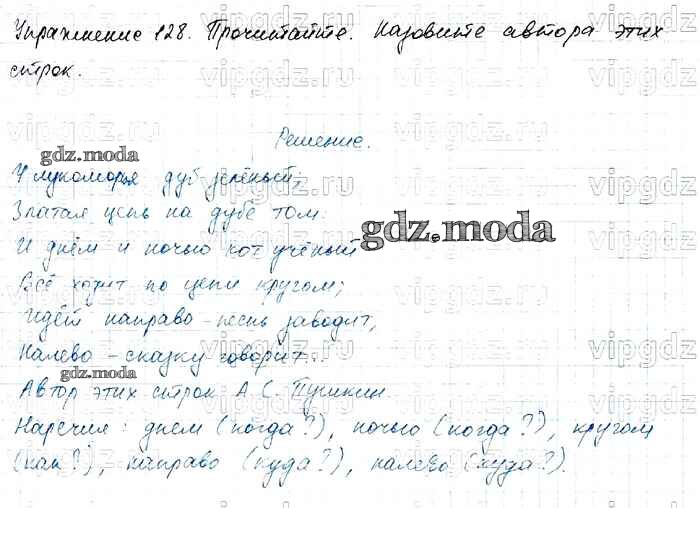 Упражнение 128. Прочитайте. Назовите автора этих
строк.
Решение.
gdz.moda
У лукоморья дуб зелёный;
Златая цепь на дубе том:
И днём и ночью кот учёный
gdz.moda
Всё ходит по цепи кругом;
Идёт направо – песнь заводит,
Налево – сказку говорит...
gdz.moda
Автор этих строк А. С. Пушкин.
Наречия: днем (когда?), ночью (когда?), кругом
(как?), направо (куда?), налево (куда?).
vipgdz.ru
vipgdz